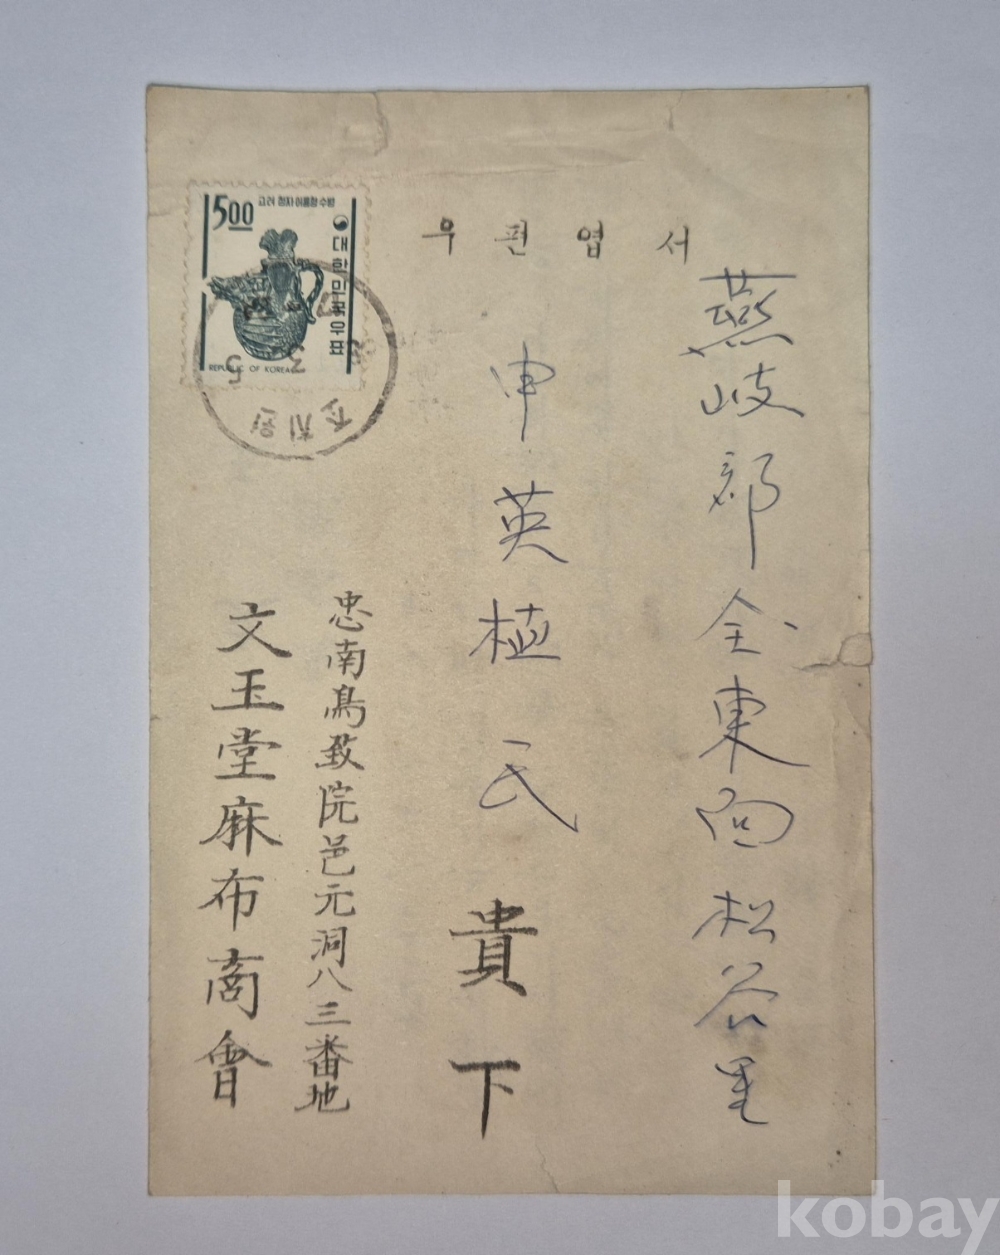 우편엽서
燕岐郡全東面松谷里
申英植氏 貴下
忠南鳥致院邑元洞八三番地
文玉堂麻布商會
500
고려 청자 여름참 수병
대한민국우표
REPUBLIC OF KOREA
조치원
kobay